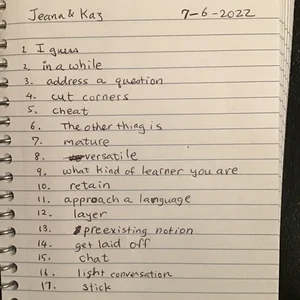 Jeana & Kaz 7-6-2022
1. I guess
2. in a while
3. address a question
4. cut corners
5. cheat
6. The other thing is
7. mature
8. versatile
9. what kind of learner you are
10. retain
11. approach a language
12. layer
13. preexisting notion
14. get laid off
15. chat
16. light conversation
17. stick